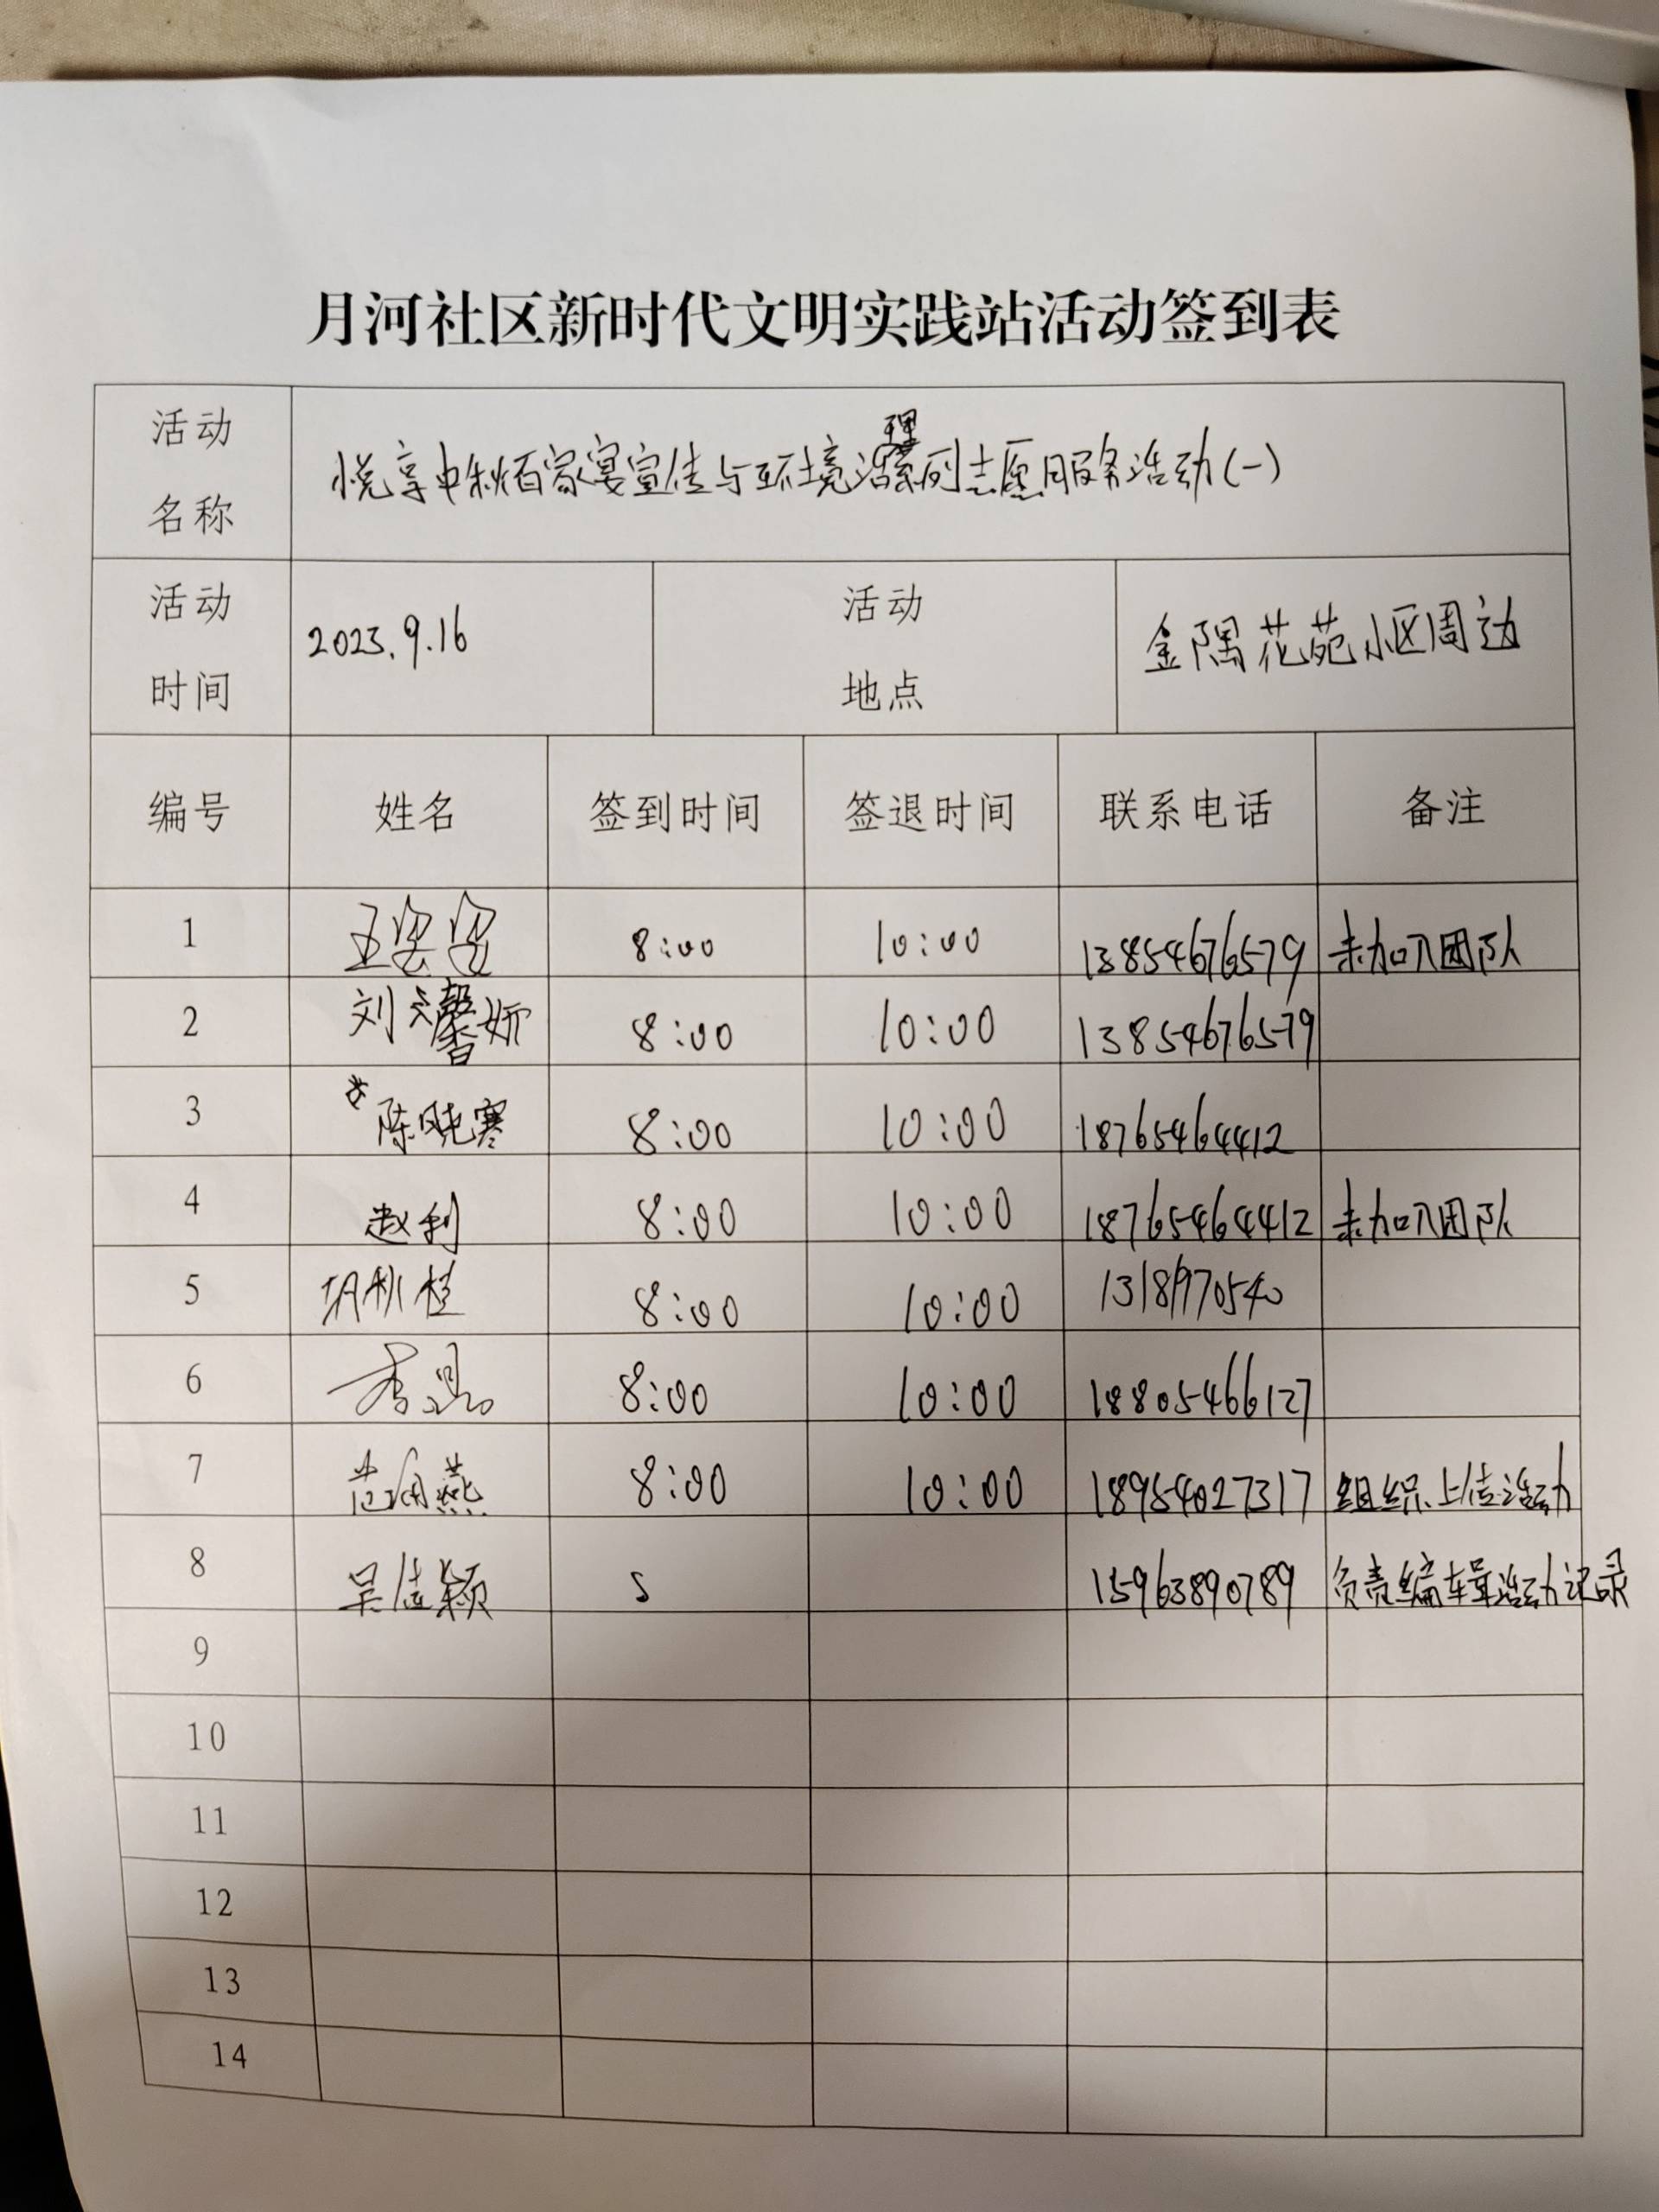 月河社区新时代文明实践站活动签到表
活动名称 悦享中秋百家宴宣传与环境治理系列志愿服务活动(一)
活动时间 2023.9.16 活动地点 金隅花苑小区周边
编号 姓名 签到时间 签退时间 联系电话 备注
1 8:00 10:00 13854676579 未加入团队
2 刘馨妍 8:00 10:00 13854676579
3 陈晓寒 8:00 10:00 18765464412
4 赵利 8:00 10:00 18765464412 未加入团队
5 秋桂 8:00 10:00
6 8:00 10:00 18805466127
7 范燕 8:00 10:00 18954027317 组织、上传活动
8 吴佳颖 15963890789 负责编辑活动记录
9
10
11
12
13
14